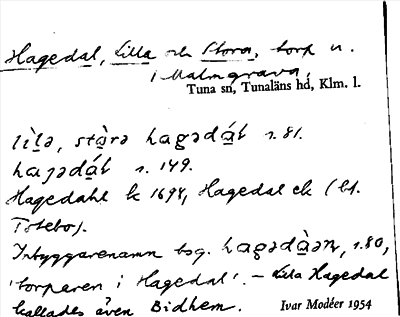 Hagedal, Lilla och Stora, torp u.
i Malmgrava,
Tuna sn, Tunaläns hd, Klm. l.
lìlə, stàrə hagədát s. 81.
haȷədát s. 149.
Hagedahl k 1694, Hagedal ek (bl.
Totebo).
Inbyggarenamn bsg. hagədàən, s. 80,
'torparen i Hagedal'. – Lilla Hagedal
kallades även Bidhem.
Ivar Modéer 1954